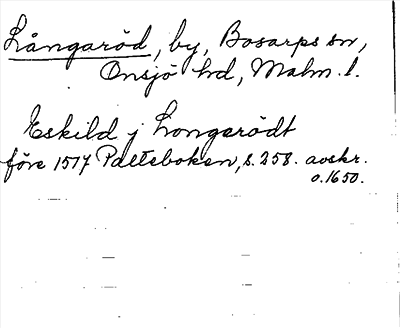 Långaröd, by, Bosarps sn,
Onsjö hd, Malm. l.
Eskild j Longerödt
före 1517 Palteboken, s. 258. avskr.
o. 1650.